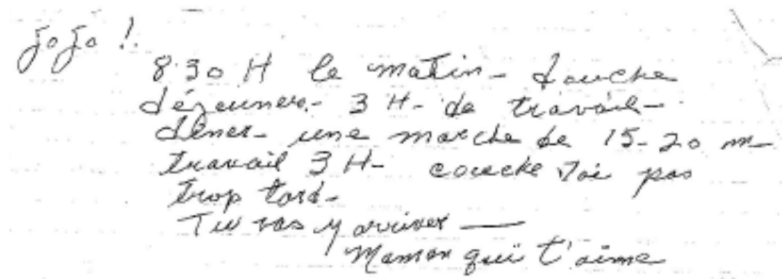 jojo !.
8:30 H le matin - douche
déjeuner - 3 H - de travail -
dîner - une marche de 15-20 m
travail 3 H - couche toi pas
trop tard -
Tu vas y arriver —
Maman qui t'aime